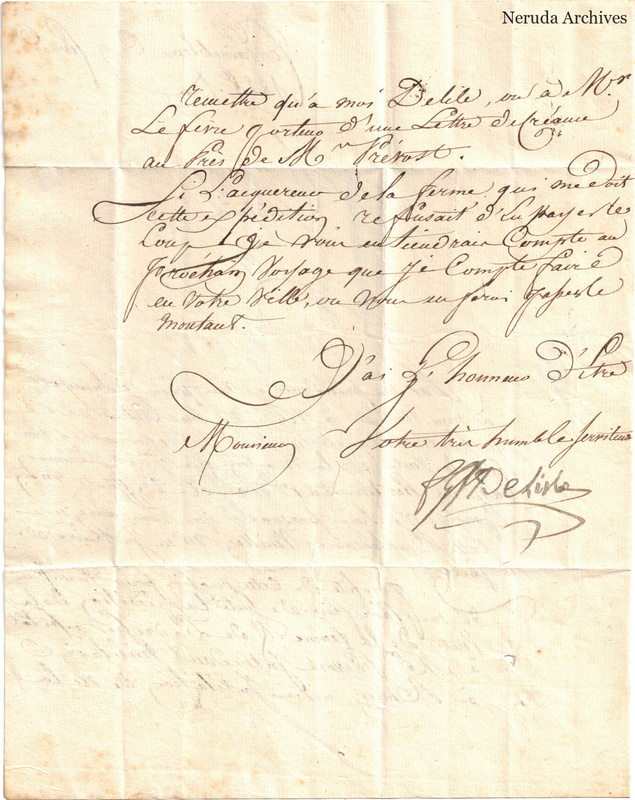 Neruda Archives
remettre qu'a moi Delile, ou à Mr
Le fevre porteur d'une Lettre de Créance
au Près de Mr Prévost.
Si L'acquereur de la ferme qui me doit
cette expédition refusait d'en payer le
Coup Je vous en tiendrai Compte au
prochain Voyage que je Compte faire
en Votre Ville, ou vous en ferai passer le
montant.
J'ai L'honneur d'être
Monsieur Votre très humble serviteur
DeLisle